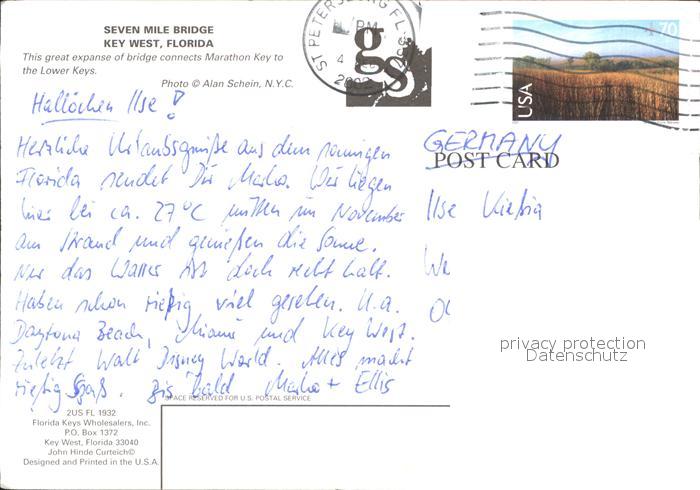 SEVEN MILE BRIDGE
KEY WEST, FLORIDA
This great expanse of bridge connects Marathon Key to
the Lower Keys.
Photo © Alan Schein, N.Y.C.
ST PETERSBURG FL
PM
4
gs
70
USA
Hallöchen Ilse!
Herzliche Urlaubsgrüße aus dem sonnigen
Florida sendet Dir Marko. Wir liegen
hier bei ca. 27°C mitten im November
am Strand und genießen die Sonne.
Nur das Wasser ist doch recht kalt.
Haben schon riesig viel gesehen. U.a.
Daytona Beach, Miami und Key West.
Zuletzt Walt Disney World. Alles macht
riesig Spaß. Bis bald Marko + Ellis
GERMANY
POST CARD
Ilse
We
privacy protection
Datenschutz
SPACE RESERVED FOR U.S. POSTAL SERVICE
2US FL 1932
Florida Keys Wholesalers, Inc.
P.O. Box 1372
Key West, Florida 33040
John Hinde Curteich©
Designed and Printed in the U.S.A.